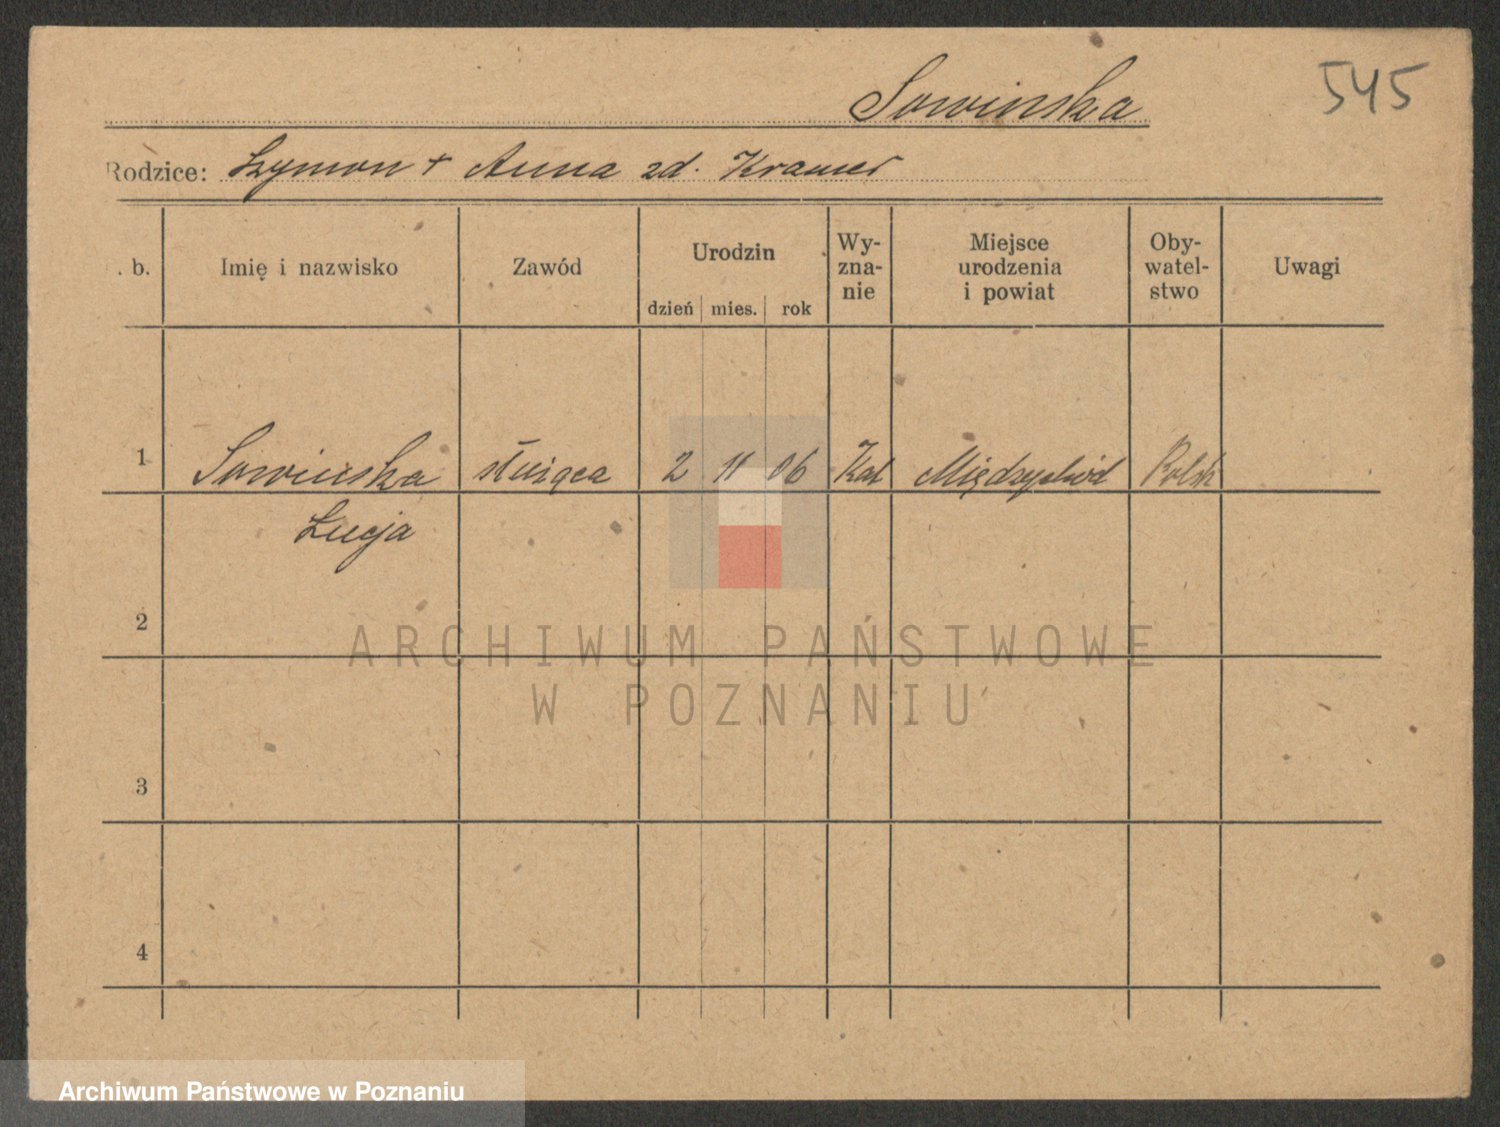 545
Sowinska
Rodzice: Szymon + Anna zd. Kramer
. b. Imię i nazwisko Zawód Urodzin dzień mies. rok Wy-zna-nie Miejsce urodzenia i powiat Oby-watel-stwo Uwagi
1 Sowinska służąca 2 11 06 Kat Międzychód Polsk
Łucja
2
ARCHIWUM PAŃSTWOWE
W POZNANIU
3
4
Archiwum Państwowe w Poznaniu